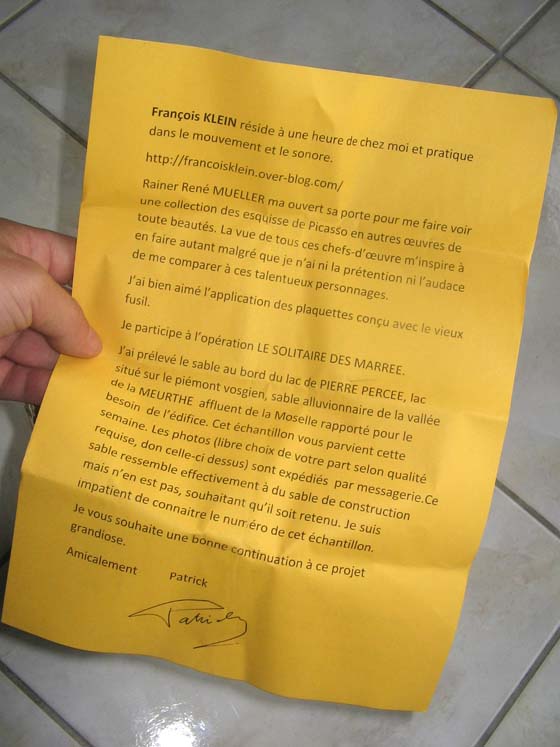 François KLEIN réside à une heure de chez moi et pratique
dans le mouvement et le sonore.
http://francoisklein.over-blog.com/
Rainer René MUELLER ma ouvert sa porte pour me faire voir
une collection des esquisse de Picasso en autres œuvres de
toute beautés. La vue de tous ces chefs-d'œuvre m'inspire à
en faire autant malgré que je n'ai ni la prétention ni l'audace
de me comparer à ces talentueux personnages.
J'ai bien aimé l'application des plaquettes conçu avec le vieux
fusil.
Je participe à l'opération LE SOLITAIRE DES MARREE.
J'ai prélevé le sable au bord du lac de PIERRE PERCEE, lac
situé sur le piémont vosgien, sable alluvionnaire de la vallée
de la MEURTHE affluent de la Moselle rapporté pour le
besoin de l'édifice. Cet échantillon vous parvient cette
semaine. Les photos (libre choix de votre part selon qualité
requise, don celle-ci dessus) sont expédiés par messagerie.Ce
sable ressemble effectivement à du sable de construction
mais n'en est pas, souhaitant qu'il soit retenu. Je suis
impatient de connaitre le numéro de cet échantillon.
Je vous souhaite une bonne continuation à ce projet
grandiose.
Amicalement Patrick